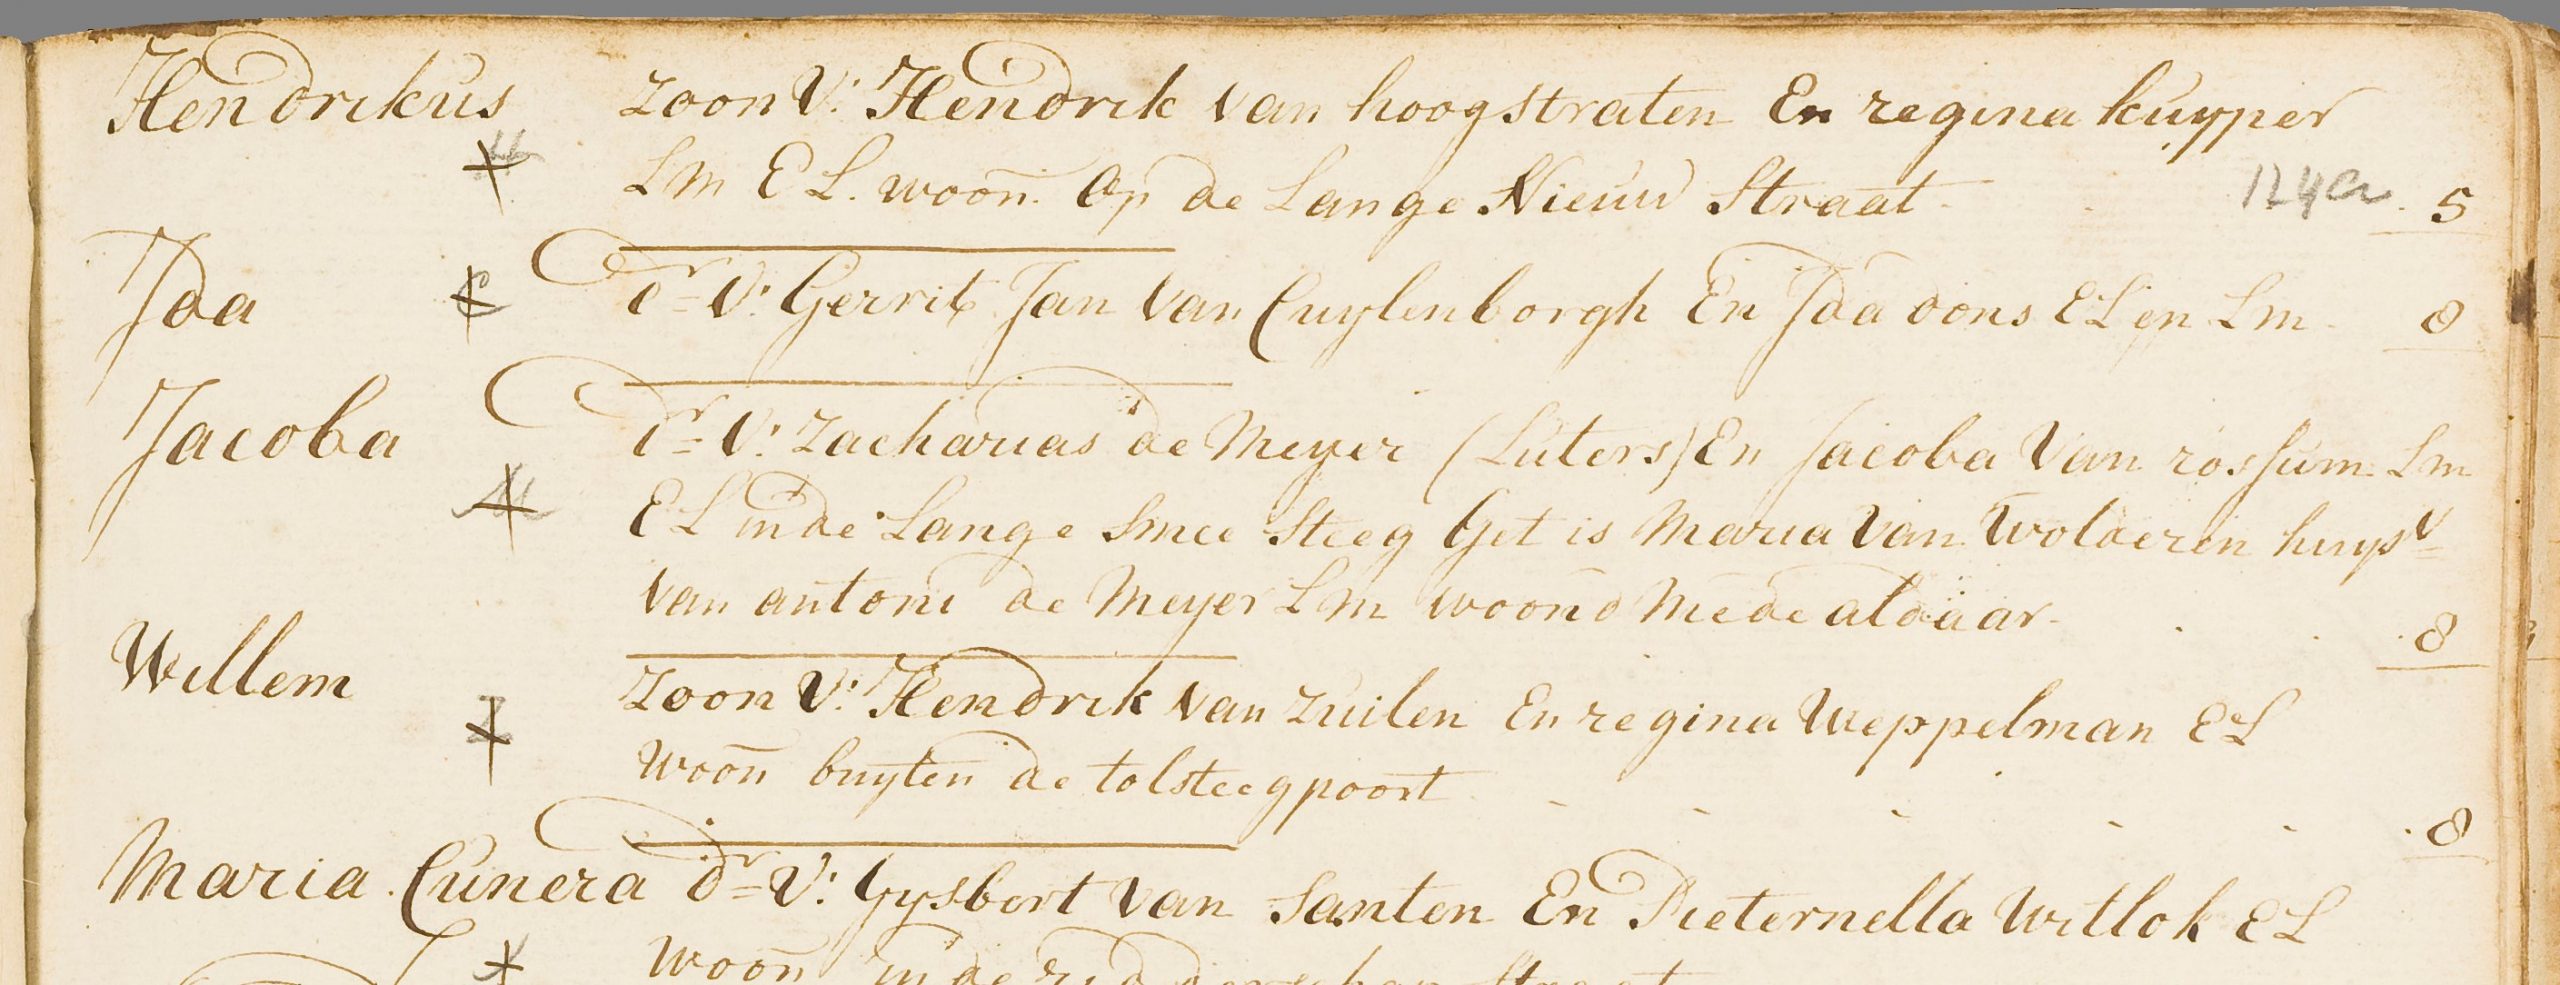 Hendrikus zoon V: Hendrik van hoogstraten En regina kuyper
Lm E L. woon. op de Lange Nieuw Straat 124a 5
Ida dr V: Gerrit Jan van Cuylenborgh En Ida dons EL en Lm 8
Jacoba dr V: Zacharias de Meyer (Luters) En Jacoba van rossum Lm
E L in de Lange Smee Steeg Get is Maria van Wolderen huysv
van antoni de Meyer Lm woond Mede aldaar 8
Willem zoon V: Hendrik van Zuilen En regina Weppelman E L
woon buyten de tolsteegpoort 8
Maria Cunera dr V: Gysbert van Santen En Pieternella Witlok E L
woon in de ridderschap Straat